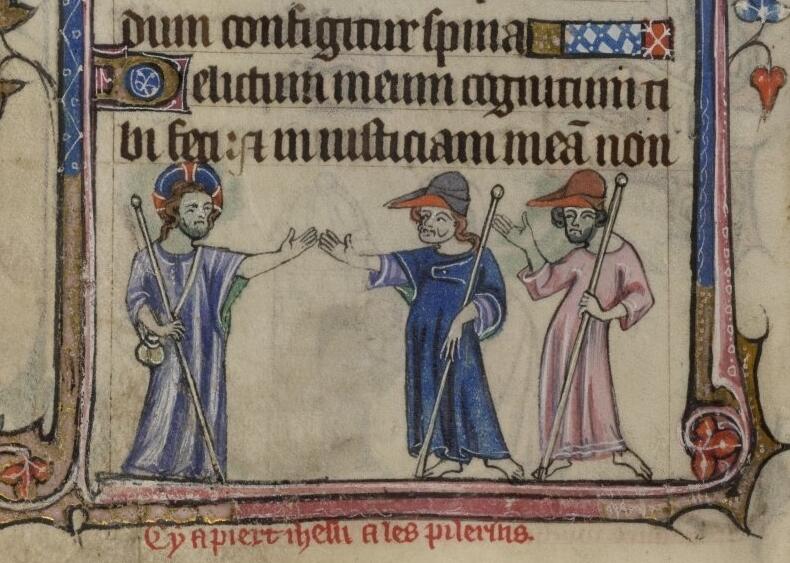 dum configitur spina
Delictum meum cognitum ti
bi feci: et iniusticiam meā non
Cy apiert ihesu a les pilerins.